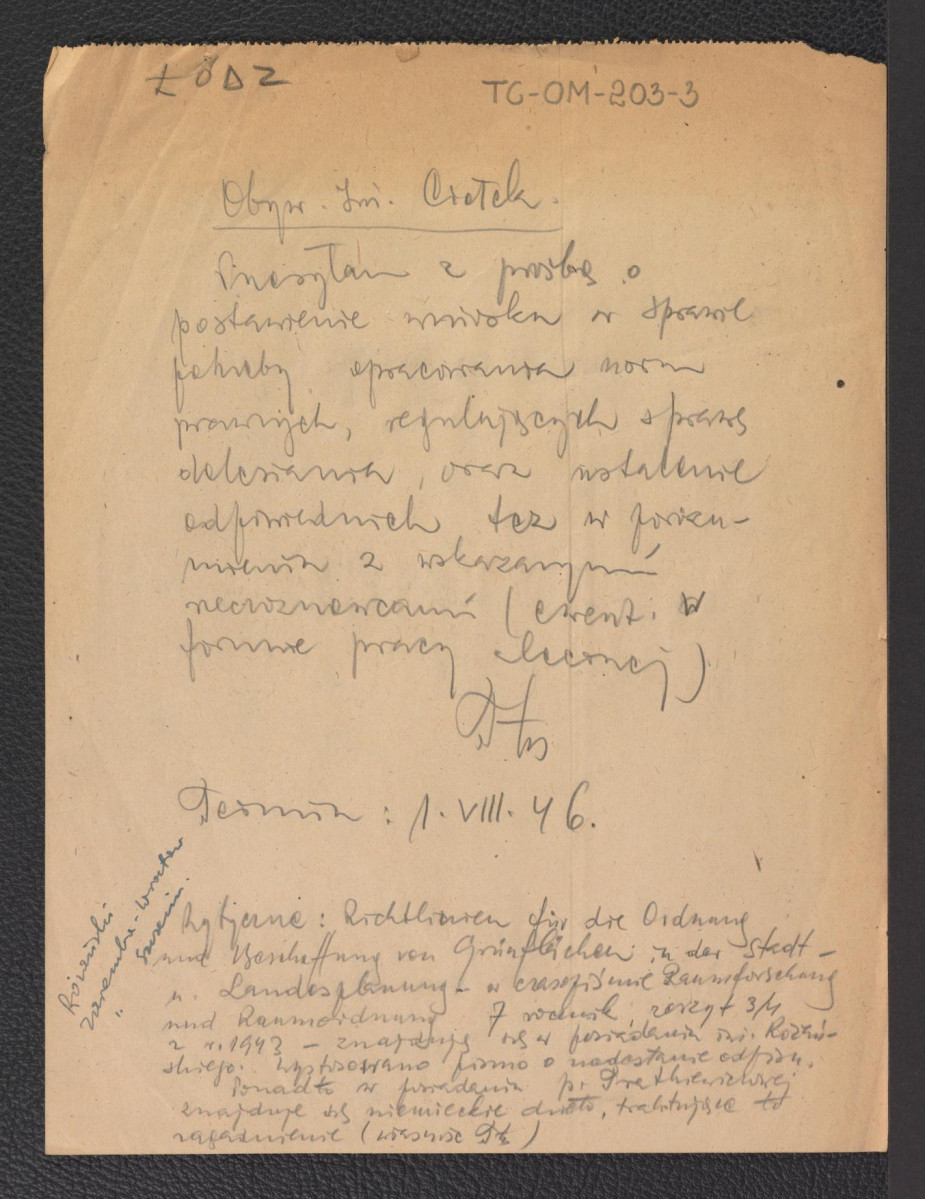 ŁÓDZ
TG-OM-203-3
Obyw. Inż.
Przesyłam z prośbą o
postawienie wniosku w sprawie
potrzeby opracowania norm
prawnych, regulujących sprawę
zalesiania, oraz ustalenie
odpowiednich tez w porozu-
mieniu z wskazanymi
rzeczoznawcami (ewent. w
formie pracy zleconej)
Termin : 1. VIII. 46.
Różański
Zaremba - Wrocław
" Szczecin.
Wytyczne : Richtlinien für die Ordnung
und Beschaffung von Grünflächen in der Stadt-
u. Landesplanung - w czasopiśmie Raumforschung
und Raumordnung 7 rocznik, zeszyt 3/4
z r. 1943 - znajdują się w posiadaniu inż. Różań-
skiego. Wystosowano pismo o nadesłanie odpisu.
Ponadto w posiadaniu p.
znajduje się niemieckie dzieło, traktujące to
zagadnienie (własność )